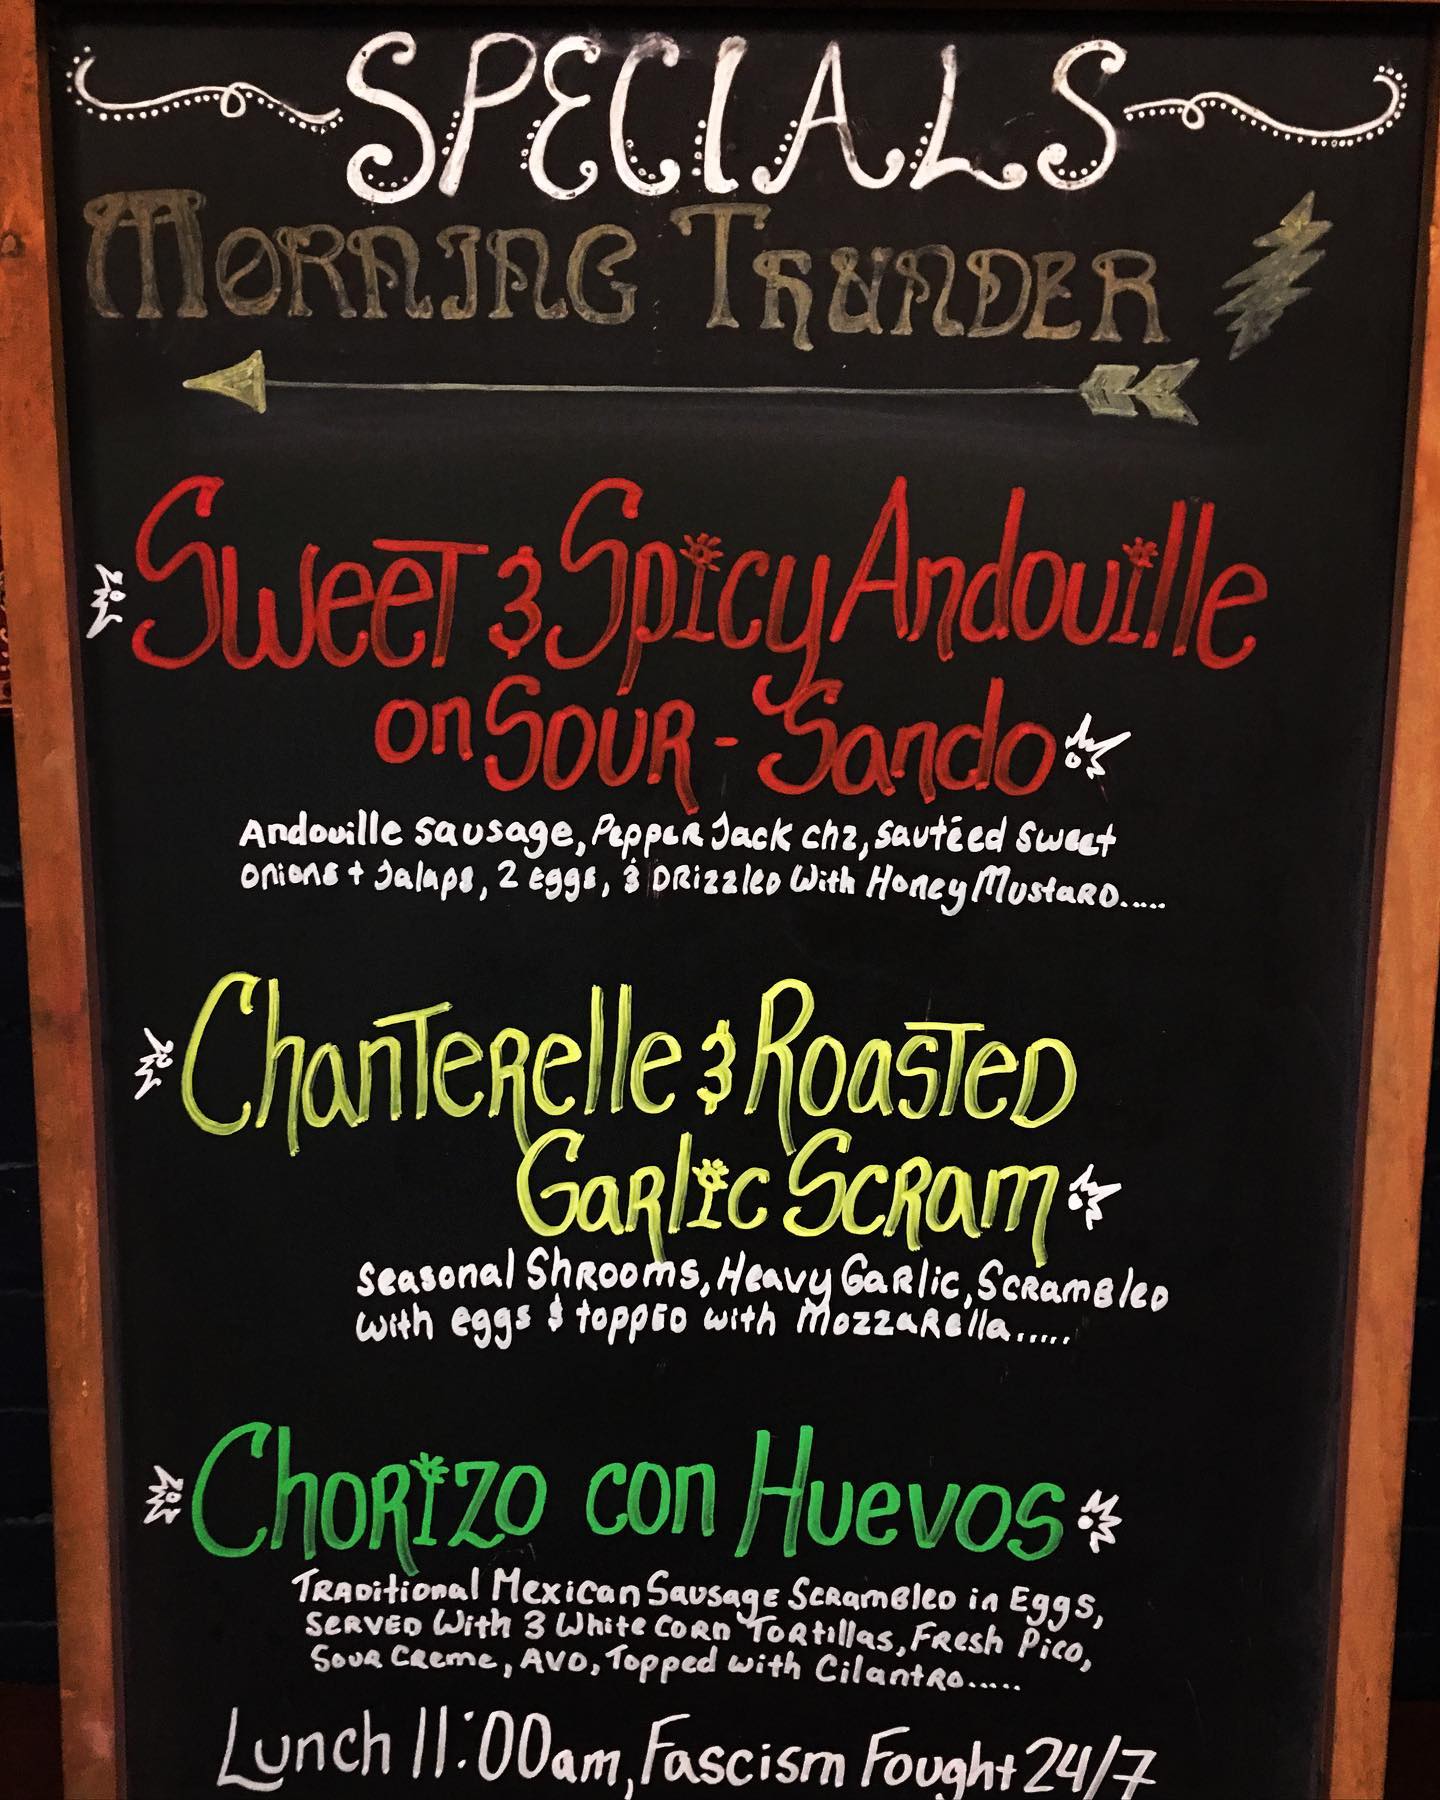 SPECIALS
MORNING THUNDER
Sweet & Spicy Andouille
on Sour-Sando
Andouille Sausage, Pepper Jack chz, sautéed sweet
onions + Jalaps, 2 eggs, & Drizzled With Honey Mustard.....
Chanterelle & Roasted
Garlic Scram
Seasonal Shrooms, Heavy Garlic, Scrambled
with eggs & topped with Mozzarella.....
Chorizo con Huevos
Traditional Mexican Sausage Scrambled in Eggs,
Served With 3 White Corn Tortillas, Fresh Pico,
Sour Creme, Avo, Topped with Cilantro.....
Lunch 11:00am, Fascism Fought 24/7